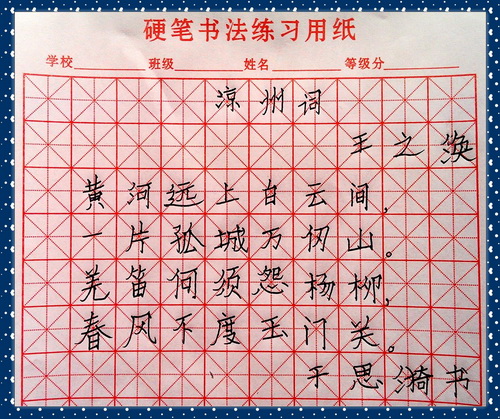 硬笔书法练习用纸
学校 班级 姓名 等级分
凉州词
王之涣
黄河远上白云间，
一片孤城万仞山。
羌笛何须怨杨柳，
春风不度玉门关。
于思漪书